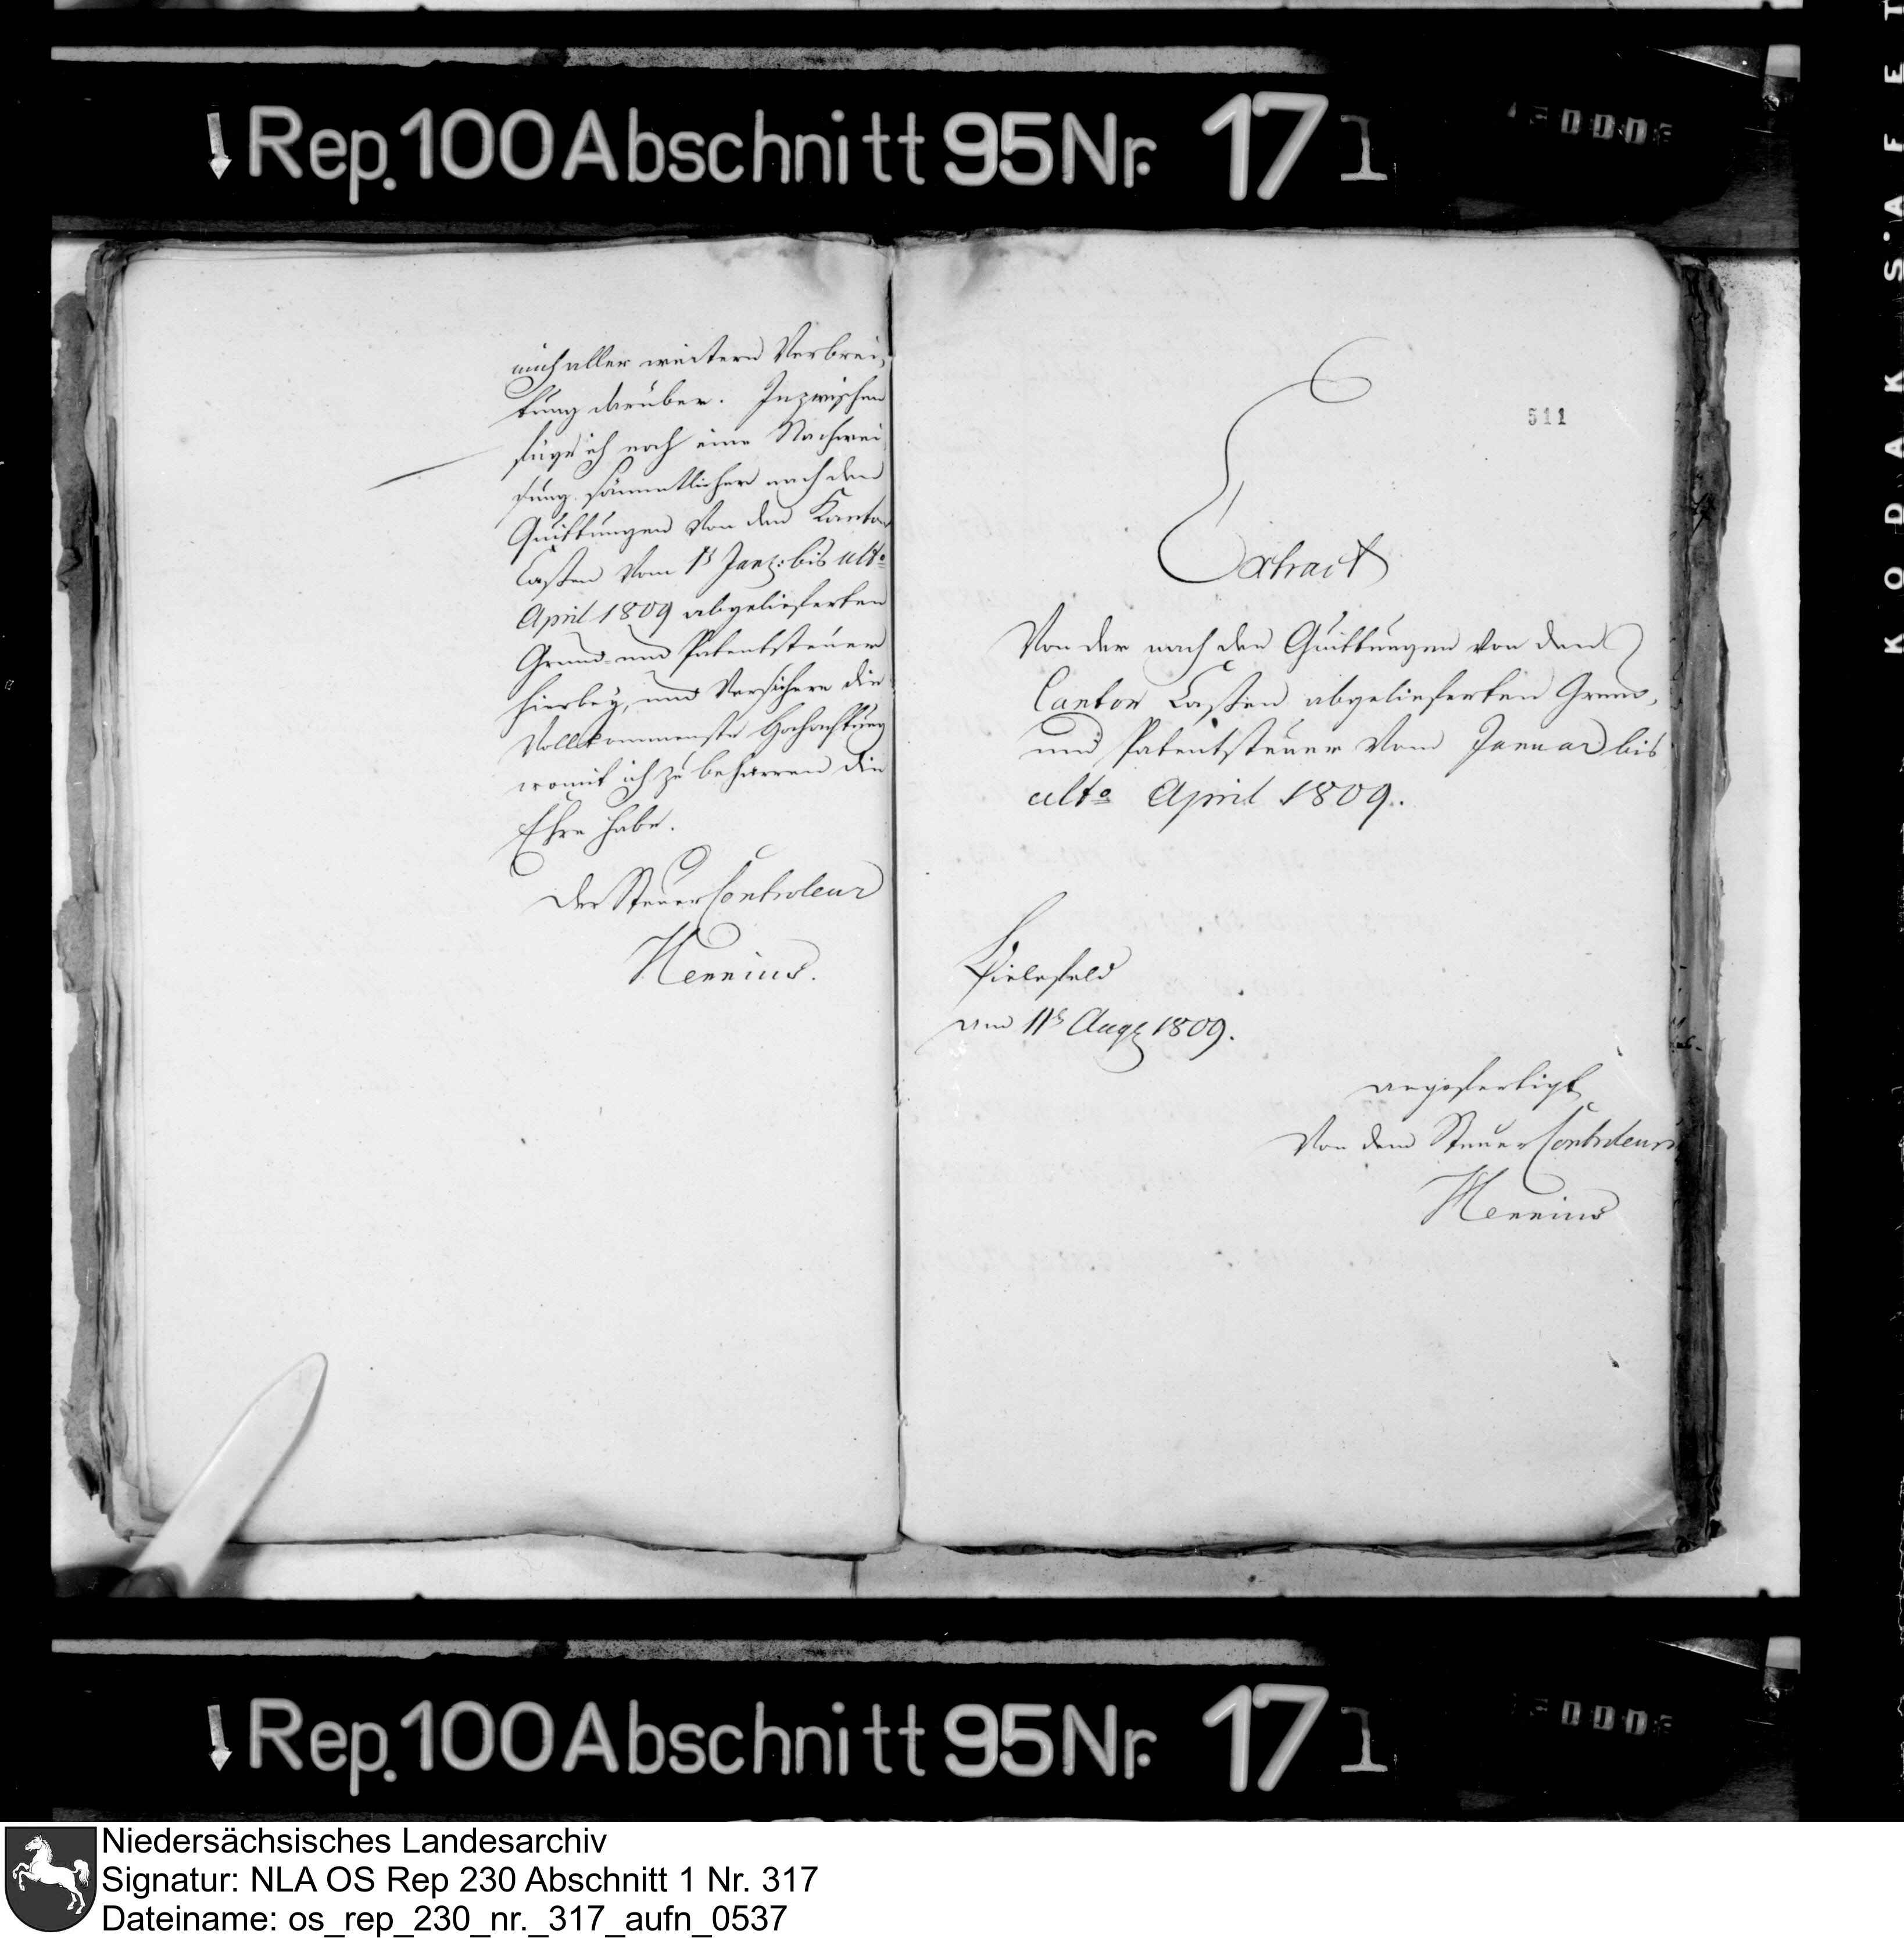 Rep. 100 Abschnitt 95 Nr. 171
mich aller weitern Verbrei-
tung darüber. Inzwischen
füge ich noch eine Nachwei
sung sämmtlicher nach den
Quittungen von den Kanton
Cassen vom 1t Janr: bis ulto
April 1809 abgelieferten
Grund- und Patentsteuer
hierbey, und versichere die
vollkommenste Hochachtung
womit ich zu beharren die
Ehre habe.
Der Steuer Controleur
Hennius.
511
Extract
Von der nach den Quittungen von den
Canton Cassen abgelieferten Grund-
und Patentsteuer vom Januar bis
ulto April 1809.
Bielefeld
am 11t Aug 1809.
angefertigt
von dem Steuer Controleur
Hennius
Rep. 100 Abschnitt 95 Nr. 171
KODAK SAFET
Niedersächsisches Landesarchiv
Signatur: NLA OS Rep 230 Abschnitt 1 Nr. 317
Dateiname: os_rep_230_nr._317_aufn_0537